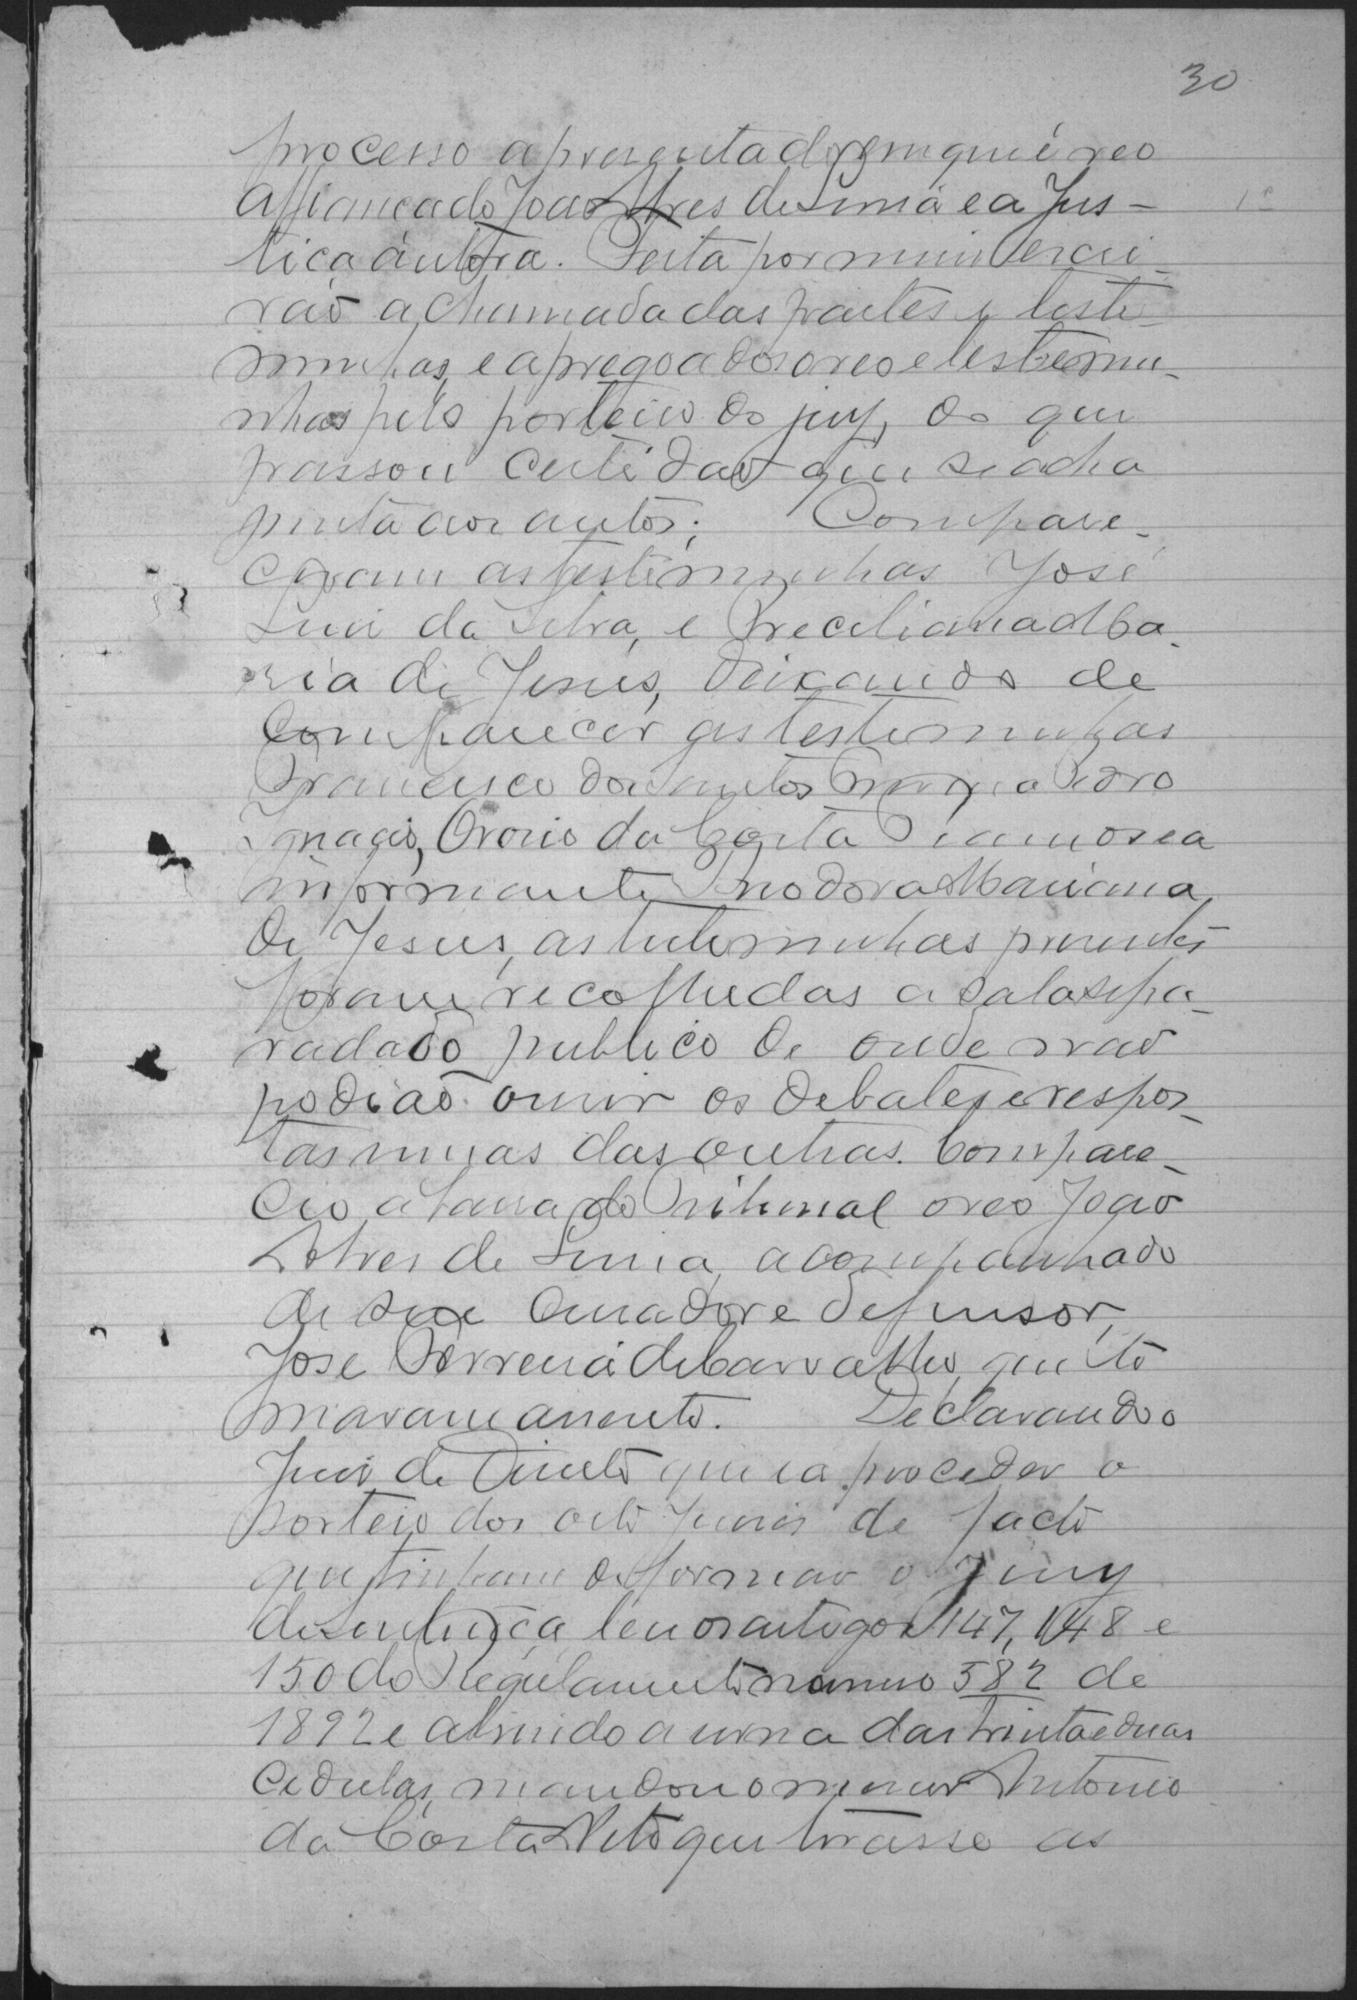 30
processo apresentado, em que é reo
affiançado João Alves de Lima e a Jus-
tiça áutora. Feita por mim escri-
vão a chamada das partes e teste-
munhas, e apregoados o reo e testemu-
nhas pelo porteiro do jury, do que
passou certidão que se acha
junta aos autos; Compare-
ceram as testemunhas José
Luis da Silva, e Preciliana Ma-
ria de Jesus, deixando de
comparecer as testemunhas
Francisco dos Santos Pedro
Ignacio, Osorio da Costa e a
informante Theodora Mariana
de Jesus, as testemunhas presentes
foram recolhidas a sala sepa-
rada do publico de onde não
podião ouvir os debates e respos-
tas umas das outras. Compare-
cio a barra do Tribunal o reo João
Alves de Lima, acompanhado
de seu Curador e defensor,
José Ferreira de Carvalho, que to-
maram assento. Declarando o
Juis de Direito que ia proceder o
sorteio dos oito Juises de facto
que tinham de formar o Jury
de sentença leu os artigos 147, 148 e
150 do Regulamento numero 582 de
1892 e abrindo a urna das trinta e duas
cedulas, mandou o menor Antonio
da Costa Neto que tirasse as